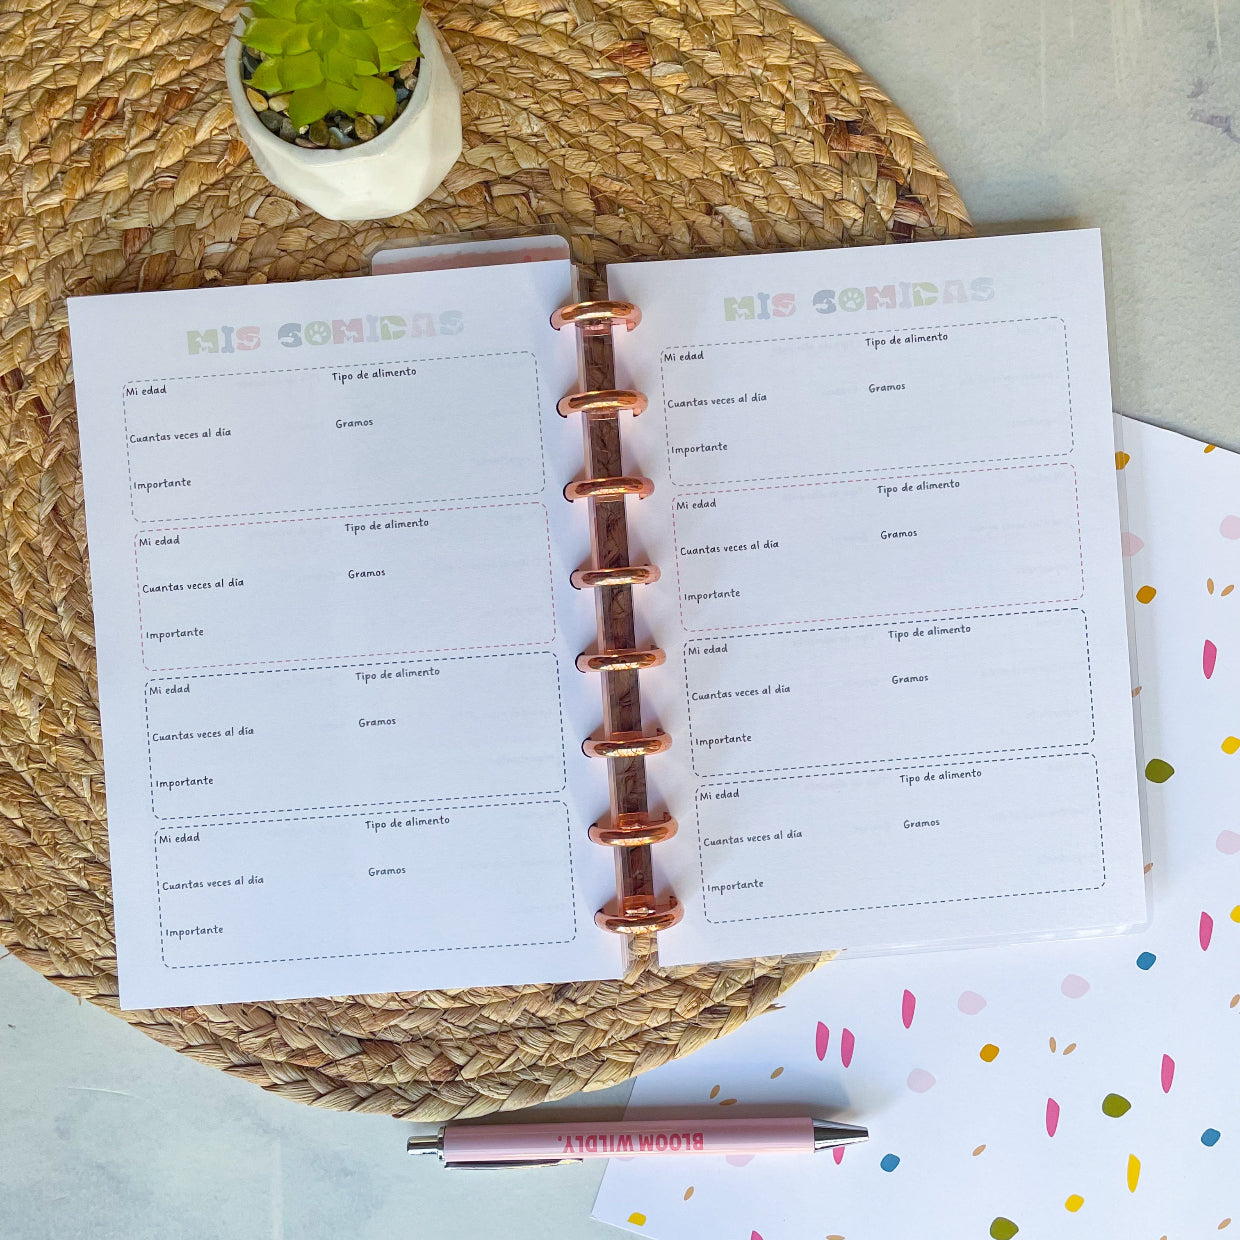 MIS COMIDAS
Mi edad Tipo de alimento
Cuantas veces al día Gramos
Importante
Mi edad Tipo de alimento
Cuantas veces al día Gramos
Importante
Mi edad Tipo de alimento
Cuantas veces al día Gramos
Importante
Mi edad Tipo de alimento
Cuantas veces al día Gramos
Importante
MIS COMIDAS
Mi edad Tipo de alimento
Cuantas veces al día Gramos
Importante
Mi edad Tipo de alimento
Cuantas veces al día Gramos
Importante
Mi edad Tipo de alimento
Cuantas veces al día Gramos
Importante
Mi edad Tipo de alimento
Cuantas veces al día Gramos
Importante
BLOOM WILDLY.